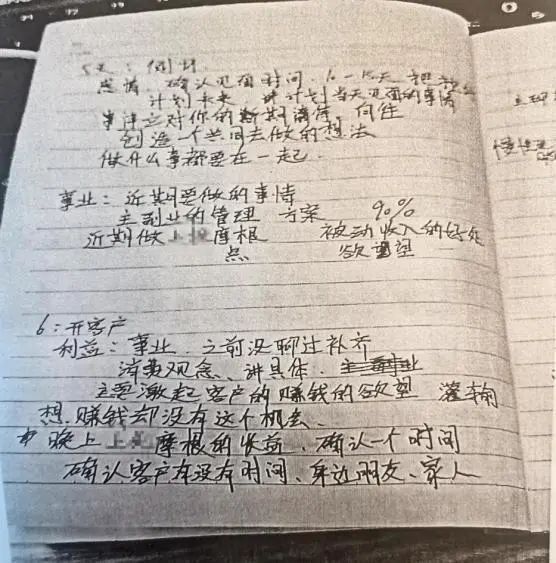 感情：确认见面时间.
计划未来 讲计划当天见面的事情
对你的 向往
创造一个共同去做的想法
做什么事都要在一起.
事业：近期要做的事情
主副业的管理 方案 90%
近期做 摩根 被动收入的好处
点 欲望
6：开客户
利益：事业. 之前没聊过补齐
消费观念、讲具体.
主要激起客户的赚钱的欲望 灌输
想.赚钱却没有这个机会.
晚上 摩根的收益. 确认一个时间
确认客户有没有时间、身边朋友、家人